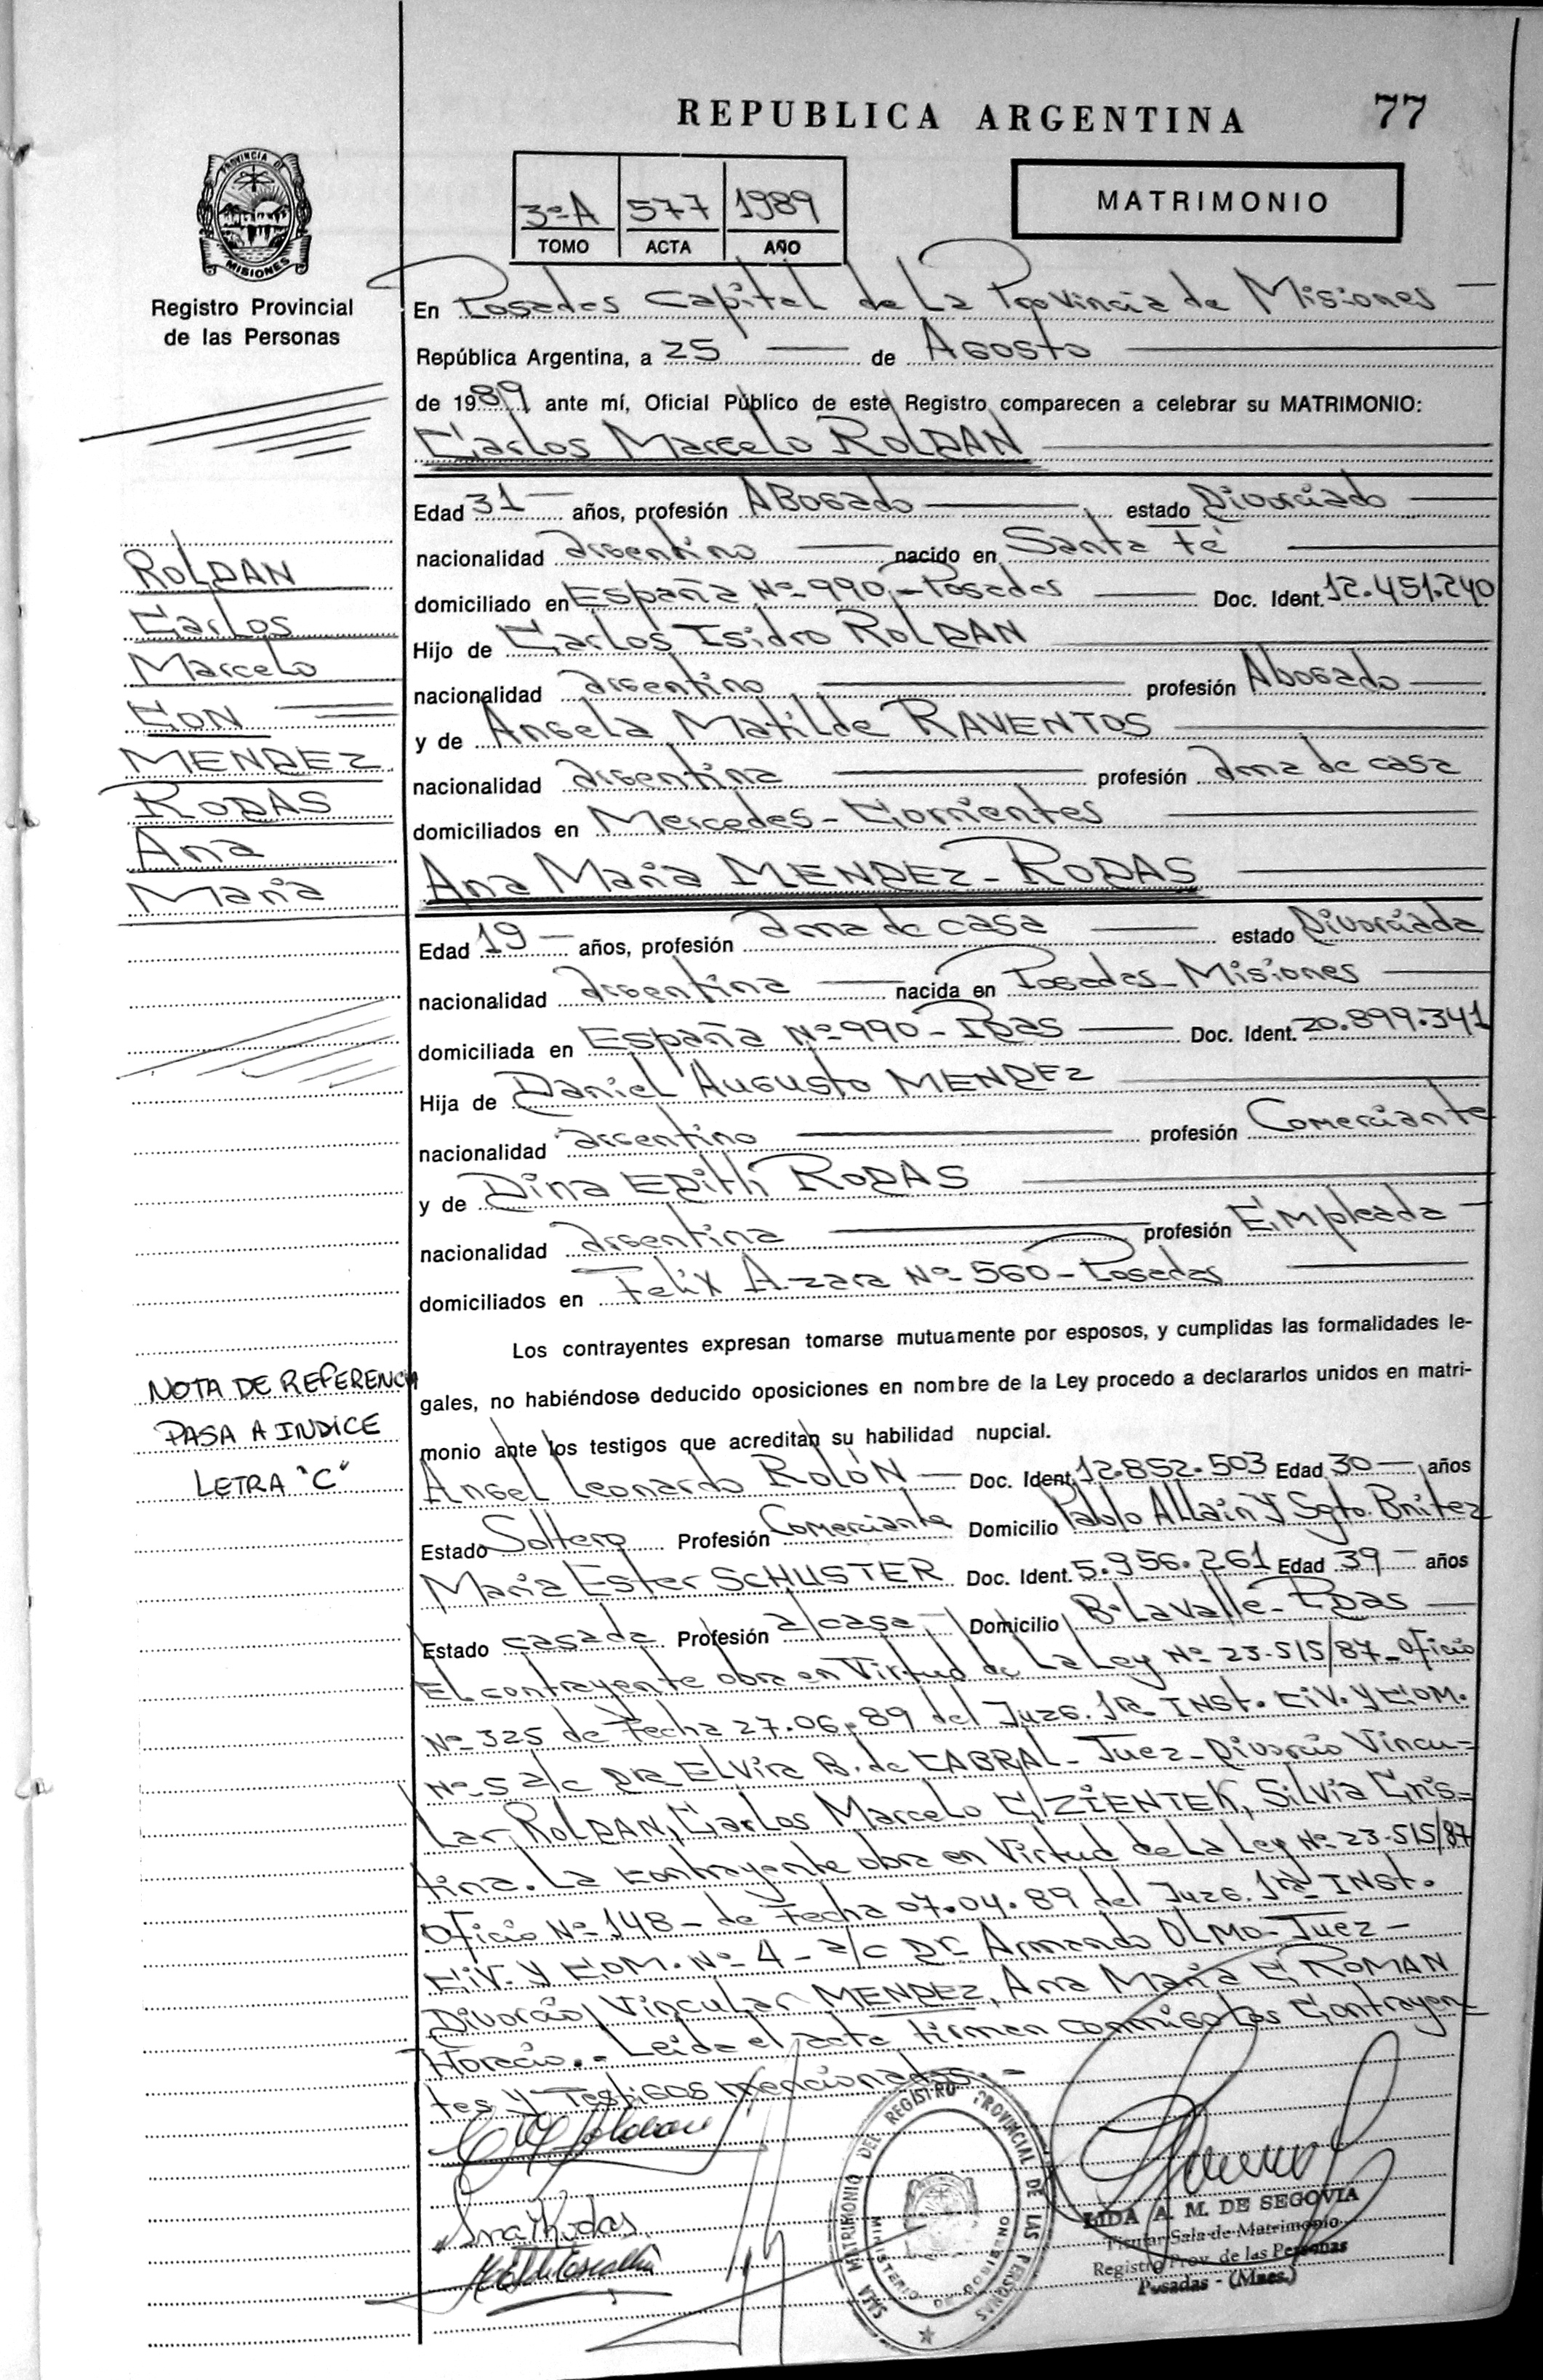 REPUBLICA ARGENTINA 77
PROVINCIA DE MISIONES
Registro Provincial
de las Personas
3º-A 577 1989
TOMO ACTA AÑO
MATRIMONIO
En Posadas Capital de La Provincia de Misiones
República Argentina, a 25 de Agosto
de 1989 ante mí, Oficial Público de este Registro comparecen a celebrar su MATRIMONIO:
Carlos Marcelo ROLDAN
Edad 31 años, profesión Abogado estado Divorciado
nacionalidad argentino nacido en Santa Fé
domiciliado en España Nº 990 - Posadas Doc. Ident. 12.451.240
Hijo de Carlos Isidro ROLDAN
nacionalidad argentino profesión Abogado
y de Angela Matilde RAVENTOS
nacionalidad argentina profesión ama de casa
domiciliados en Mercedes - Corrientes
Ana Maria MENDEZ - RODAS
Edad 19 años, profesión ama de casa estado Divorciada
nacionalidad argentina nacida en Posadas Misiones
domiciliada en España Nº 990 - Pdas Doc. Ident. 20.899.341
Hija de Daniel Augusto MENDEZ
nacionalidad argentino profesión Comerciante
y de Dina Edith RODAS
nacionalidad argentina profesión Empleada
domiciliados en Felix Azara Nº 560 - Posadas
Los contrayentes expresan tomarse mutuamente por esposos, y cumplidas las formalidades le-
gales, no habiéndose deducido oposiciones en nombre de la Ley procedo a declararlos unidos en matri-
monio ante los testigos que acreditan su habilidad nupcial.
Angel Leonardo ROLÓN Doc. Ident. 12.852.503 Edad 30 años
Estado Soltero Profesión Comerciante Domicilio Pablo Allain y Sgto. Bnitez
Maria Ester SCHUSTER Doc. Ident. 5.956.261 Edad 39 años
Estado casada Profesión a/casa Domicilio Bº Lavalle - Pdas
El contrayente obra en Virtud de La Ley Nº 23.515/87 - Oficio
Nº 325 de Fecha 27.06.89 del Juzg. 1ra INST. CIV. Y COM.
Nº 5 a/c DRA ELVIRA B. de CABRAL - Juez - Divorcio Vincu=
Lar ROLDAN, Carlos Marcelo C/ ZIENTEK, Silvia Cris=
tina. La contrayente obra en Virtud de La Ley Nº 23.515/87
Oficio Nº 148 - de Fecha 07.04.89 del Juzg. 1ra INST.
CIV. Y COM. Nº 4 - a/c Dr Armando OLMO - Juez -
Divorcio Vincular MENDEZ, Ana Maria C/ ROMAN
Horacio.- Leida el acta firman conmigo Los Contrayen=
tes y Testigos mencionados.-
ROLDAN
Carlos
Marcelo
CON
MENDEZ
RODAS
Ana
Maria
NOTA DE REFERENCIA
PASA A INDICE
LETRA "C"
SALA MATRIMONIO DEL REGISTRO PROVINCIAL DE LAS PERSONAS
MINISTERIO DE GOBIERNO
LIDA A. M. DE SEGOVIA
Titular Sala de Matrimonio
Registro Prov. de las Personas
Posadas - (Mnes.)